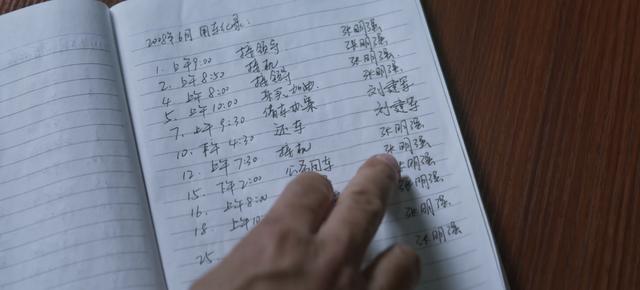 2008年6月 用车记录:
1. 上午9:00 接领导 张明强
2. 上午8:50 接机 张明强
4. 上午8:00 接领导 张明强
5. 上午10:00 加油 刘建军
7. 上午9:30 借车 刘建军
10. 下午4:30 还车 张明强
12. 上午7:30 接机 张明强
15. 下午2:00 公务用车 张明强
16. 上午8:00 张明强
18. 上午10 张明强
25. 张明强